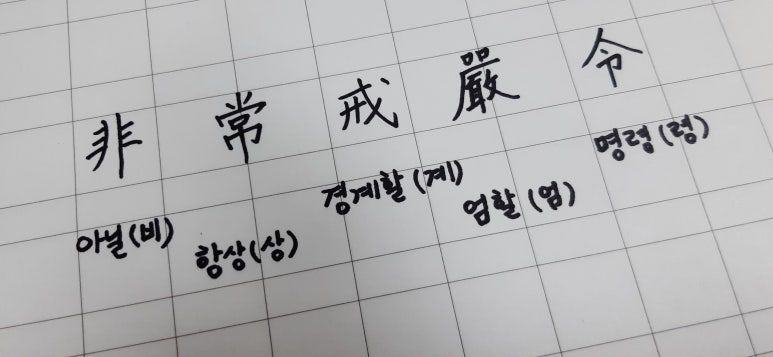 非常戒嚴令
아닐(비) 항상(상) 경계할(계) 엄할(엄) 명령(령)